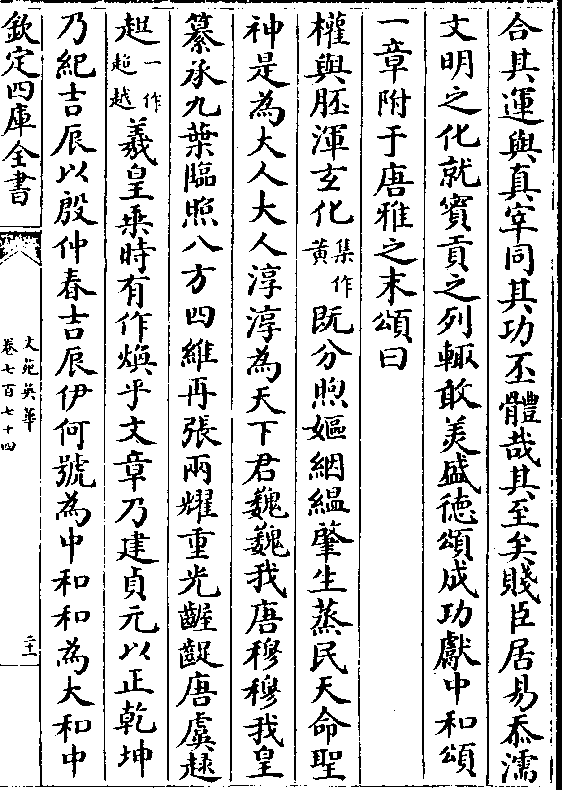 合其運與真宰同其功丕體哉其至矣賤臣居易忝濡
文明之化就賓貢之列輙敢美盛德頌成功獻中和頌
一章附于唐雅之末頌曰
權輿胚渾玄化集作黄既分煦嫗絪緼肇生蒸民天命聖
神是為大人大人淳淳為天下君巍巍我唐穆穆我皇
纂承九葉臨照八方四維再張兩耀重光齷齪唐虞趑
趄一作超越羲皇乗時有作煥乎文章乃建貞元以正乾坤
乃紀吉辰以殷仲春吉辰伊何號為中和和為大和中
欽定四庫全書
文苑英華
卷七百七十四
二十一